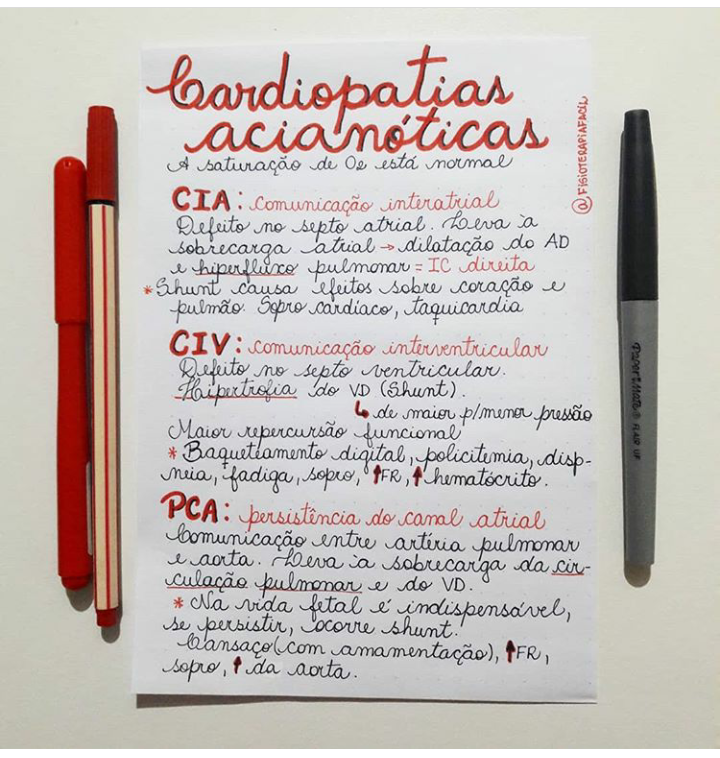 Cardiopatias
acianóticas
A saturação de O2 está normal
@FISIOTERAPIAFACIL
CIA: comunicação interatrial
Defeito no septo atrial. Leva à
sobrecarga atrial → dilatação do AD
e hiperfluxo pulmonar = IC direita
*Shunt causa efeitos sobre coração e
pulmão. Sopro cardíaco, taquicardia
CIV: comunicação interventricular
Defeito no septo ventricular.
Haipertrofia do VD (Shunt).
↳ de maior p/menor pressão
Maior repercursão funcional
* Baqueteamento digital, policitemia, disp-
neia, fadiga, sopro, ↑FR, ↑hematócrito.
PCA: persistência do canal atrial
Comunicação entre artéria pulmonar
e aorta. Leva à sobrecarga da cir-
culação pulmonar e do VD.
* Na vida fetal é indispensável,
se persistir, ocorre shunt.
Cansaço(com amamentação), ↑FR,
sopro, ↑ da aorta.
Paper:Mate® FLAIR UF